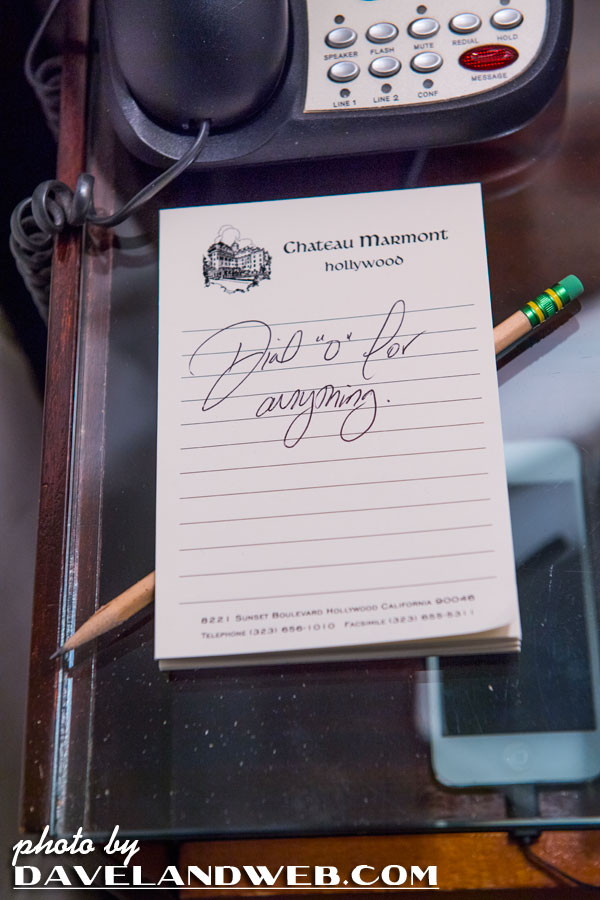 SPEAKER FLASH MUTE REDIAL HOLD
LINE 1 LINE 2 CONF MESSAGE
Chateau Marmont
hollywood
Dial "o" for
anything.
8221 Sunset Boulevard Hollywood California 90046
Telephone (323) 656-1010 Facsimile (323) 655-5311
photo by
DAVELANDWEB.COM